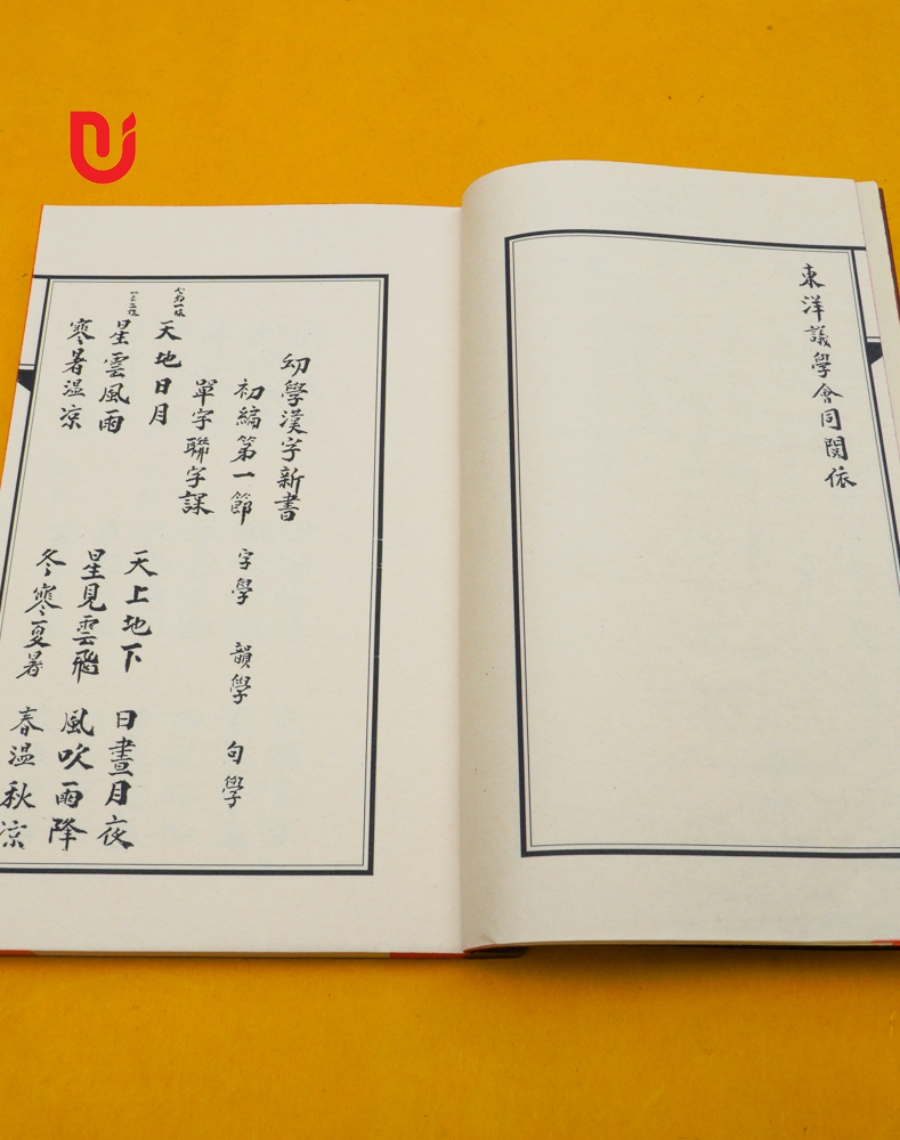 東洋議學會同閱依
幼學漢字新書
初編第一節 字學 韻學 句學
單字聯字課
天地日月 天上地下 日晝月夜
星雲風雨 星見雲飛 風吹雨降
寒暑温凉 冬寒夏暑 春温秋凉